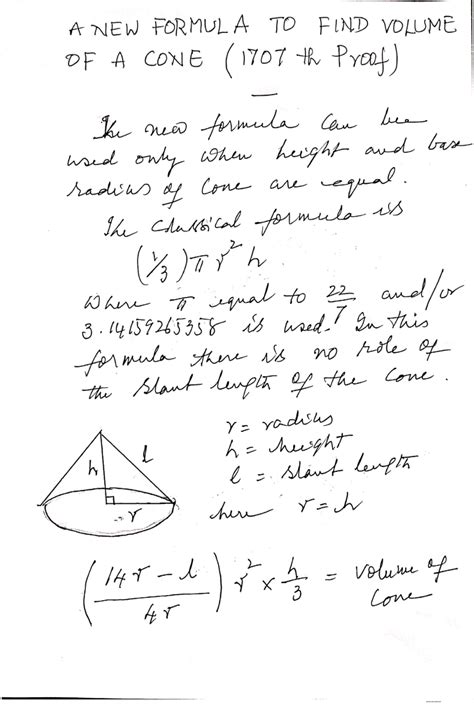 A NEW FORMULA TO FIND VOLUME
OF A CONE (1707 th Proof)
The new formula can bee
used only when height and base
radius of cone are equal.
The classical formula is
(1/3) π r² h
Where π equal to 22/7 and/or
3.14159265358 is used. In this
formula there is no role of
the slant length of the cone.
r = radius
h = height
l = slant length
here r = h
h
l
r
((14r - l)/4r) r² × h/3 = volume of
cone